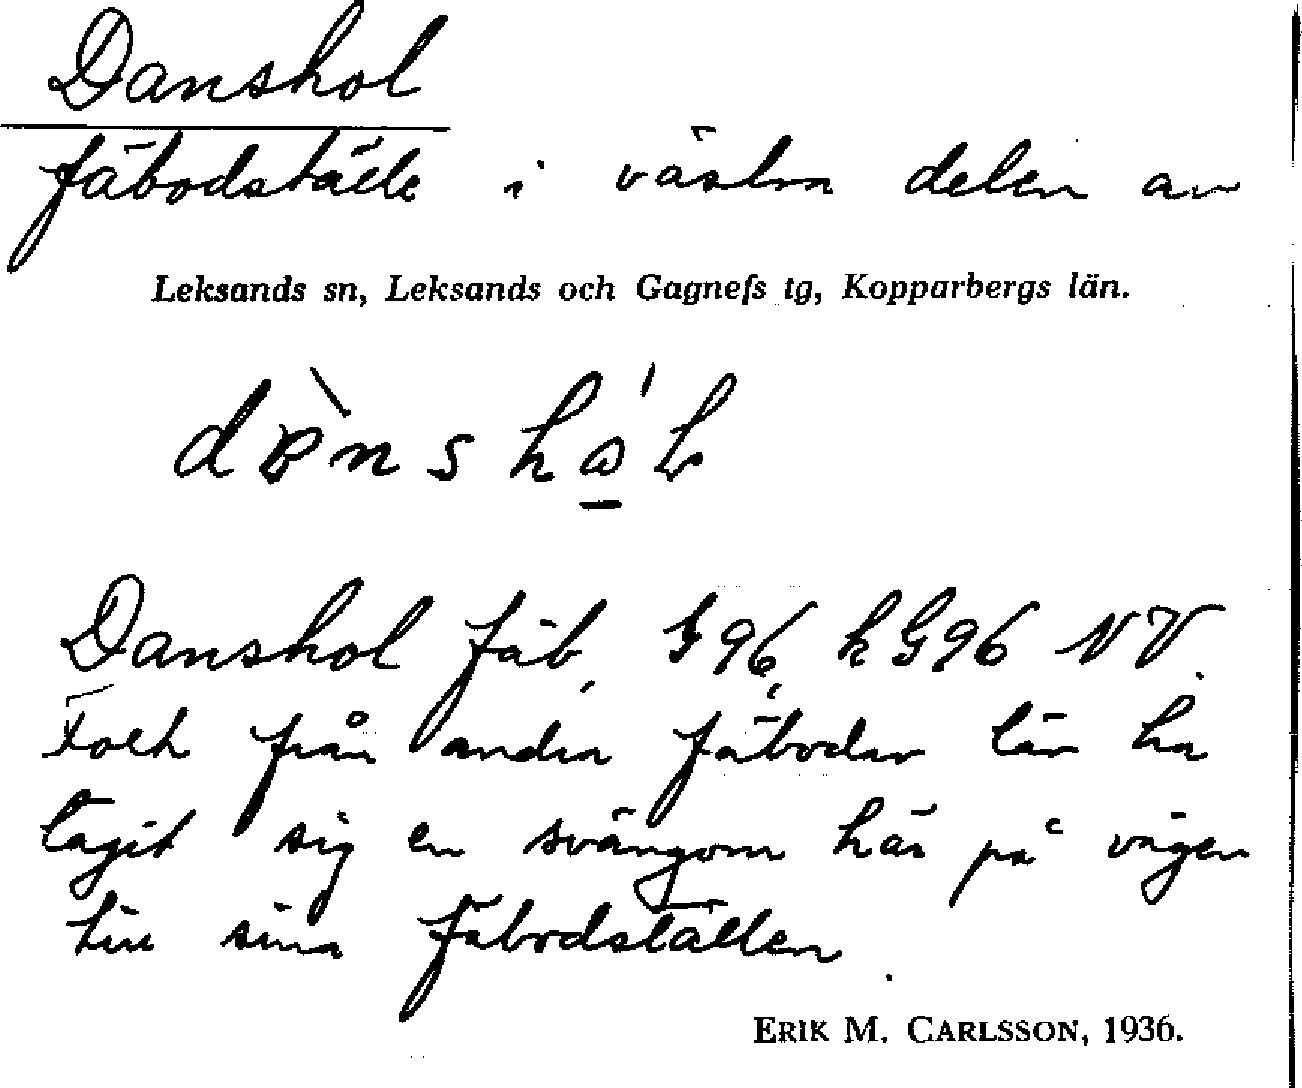 Danshol
fäbodställe i västra delen av
Leksands sn, Leksands och Gagnefs tg, Kopparbergs län.
Danshol fäb, G 96, k G96 NV.
Folk från andra fäbodar lär ha
tagit sig en svängom här på vägen
till sina fäbodställen.
ERIK M. CARLSSON, 1936.